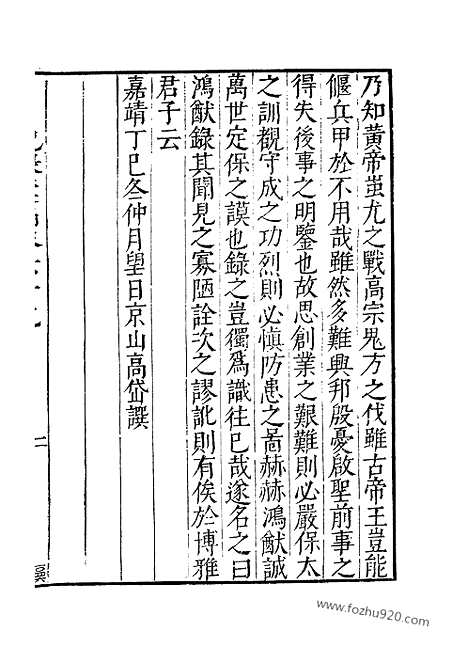 乃知黃帝蚩尤之戰高宗鬼方之伐雖古帝王豈能
偃兵甲於不用哉雖然多難興邦殷憂啟聖前事之
得失後事之明鑒也故思創業之艱難則必嚴保太
之訓觀守成之功烈則必慎防患之啚赫赫鴻猷誠
萬世定保之謨也錄之豈獨爲識往已哉遂名之曰
鴻猷錄其聞見之寡陋詮次之謬訛則有俟於博雅
君子云
嘉靖丁巳冬仲月望日京山高岱譔
www.fozhu920.com